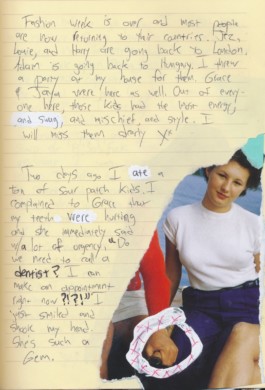 Fashion week is over and most people
are now returning to their countries. Jez,
Louie, and Harry are going back to London.
Adam is going back to Hungry. I threw
a party at my house for them. Grace
& Tanya were here as well. Out of every-
one here, these kids had the most energy,
and swag, and mischief, and style. I
will miss them dearly Xx
Two days ago I ate a
ton of sour patch kids. I
complained to Grace about
my teeth were hurting
and she immediately said
w/a lot of urgency, "Do
we need to call a
dentist? I can
make an appointment
right now?!?!" I
just smiled and
shook my head.
She's such a
Gem.